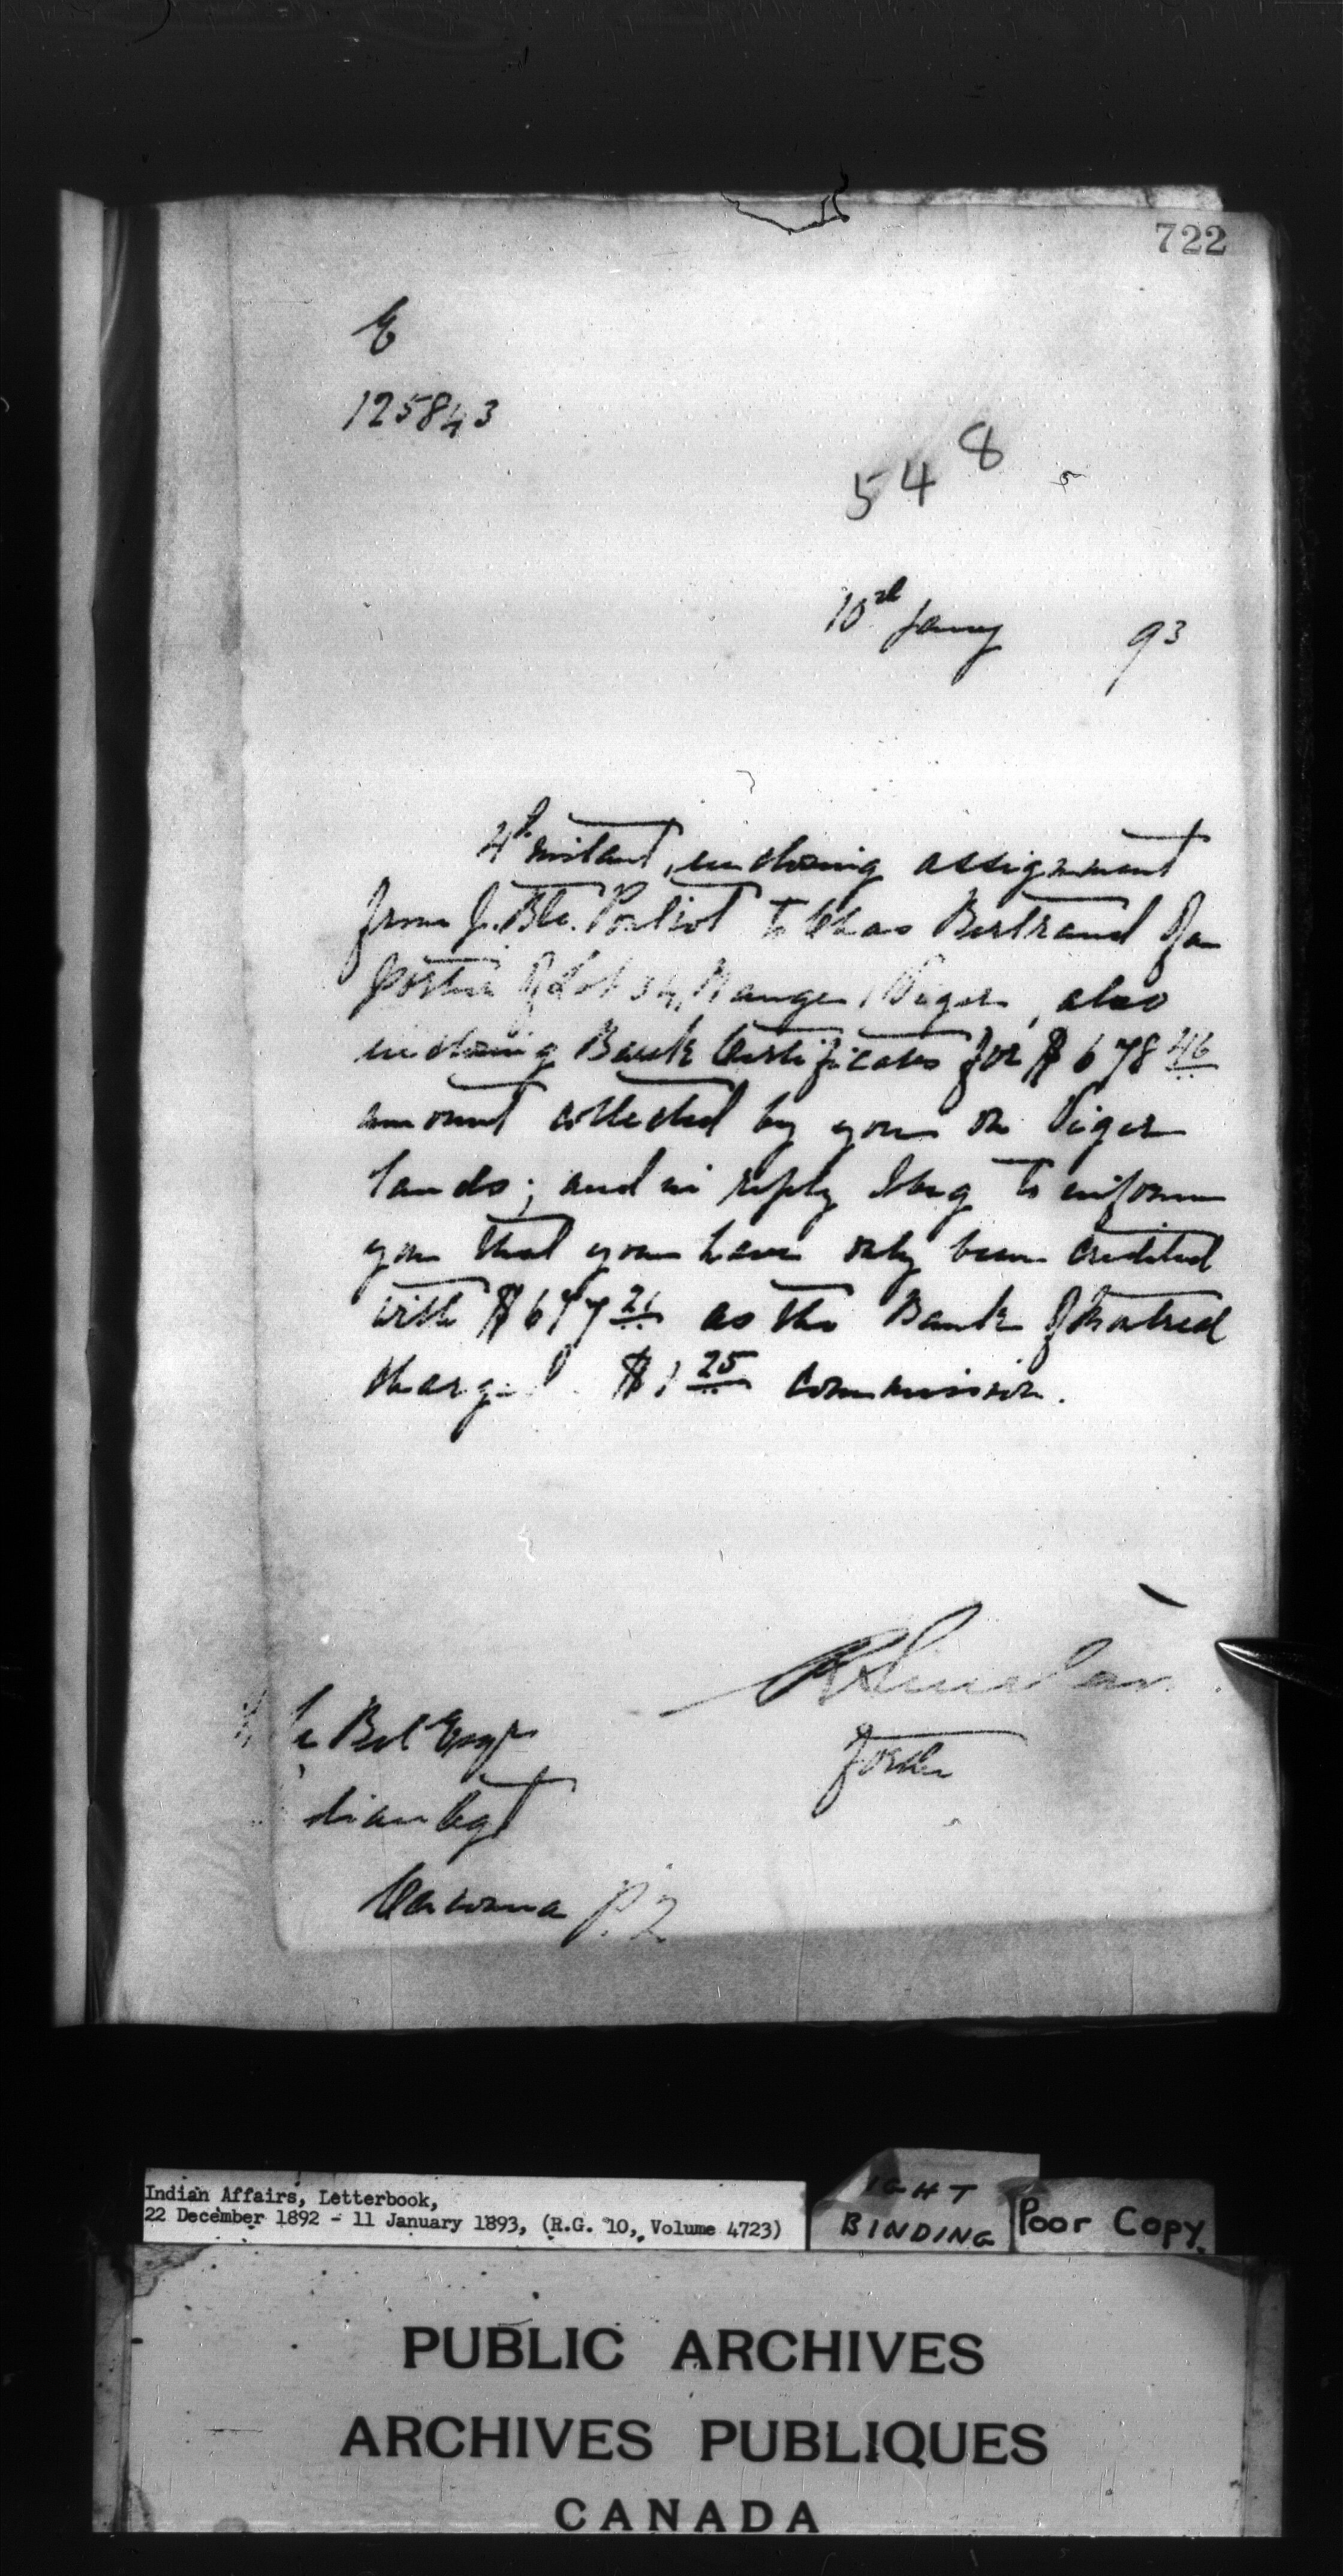 722
E
125843
548
10th Jany 93
4th instant, enclosing assignment
from J. Bte. Pouliot to Chas Bertrand of a
portion of Lot 34, Range 1 Viger, also
enclosing Bank Certificates for $678 46
amount collected by you on Viger
lands; and in reply I beg to inform
you that you have only been credited
with $677 21 as the Bank of Montreal
charged $1 25 commission.
R Sinclair
for the
Le Bel Esqr
dian Agt
Cacouna P.Q
Indian Affairs, Letterbook,
22 December 1892 - 11 January 1893, (R.G. 10, Volume 4723)
IGHT
BINDING
Poor Copy.
PUBLIC ARCHIVES
ARCHIVES PUBLIQUES
CANADA